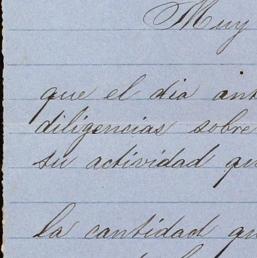 Muy
que el dia ant
diligencias sobre
su actividad qu
la cantidad qu